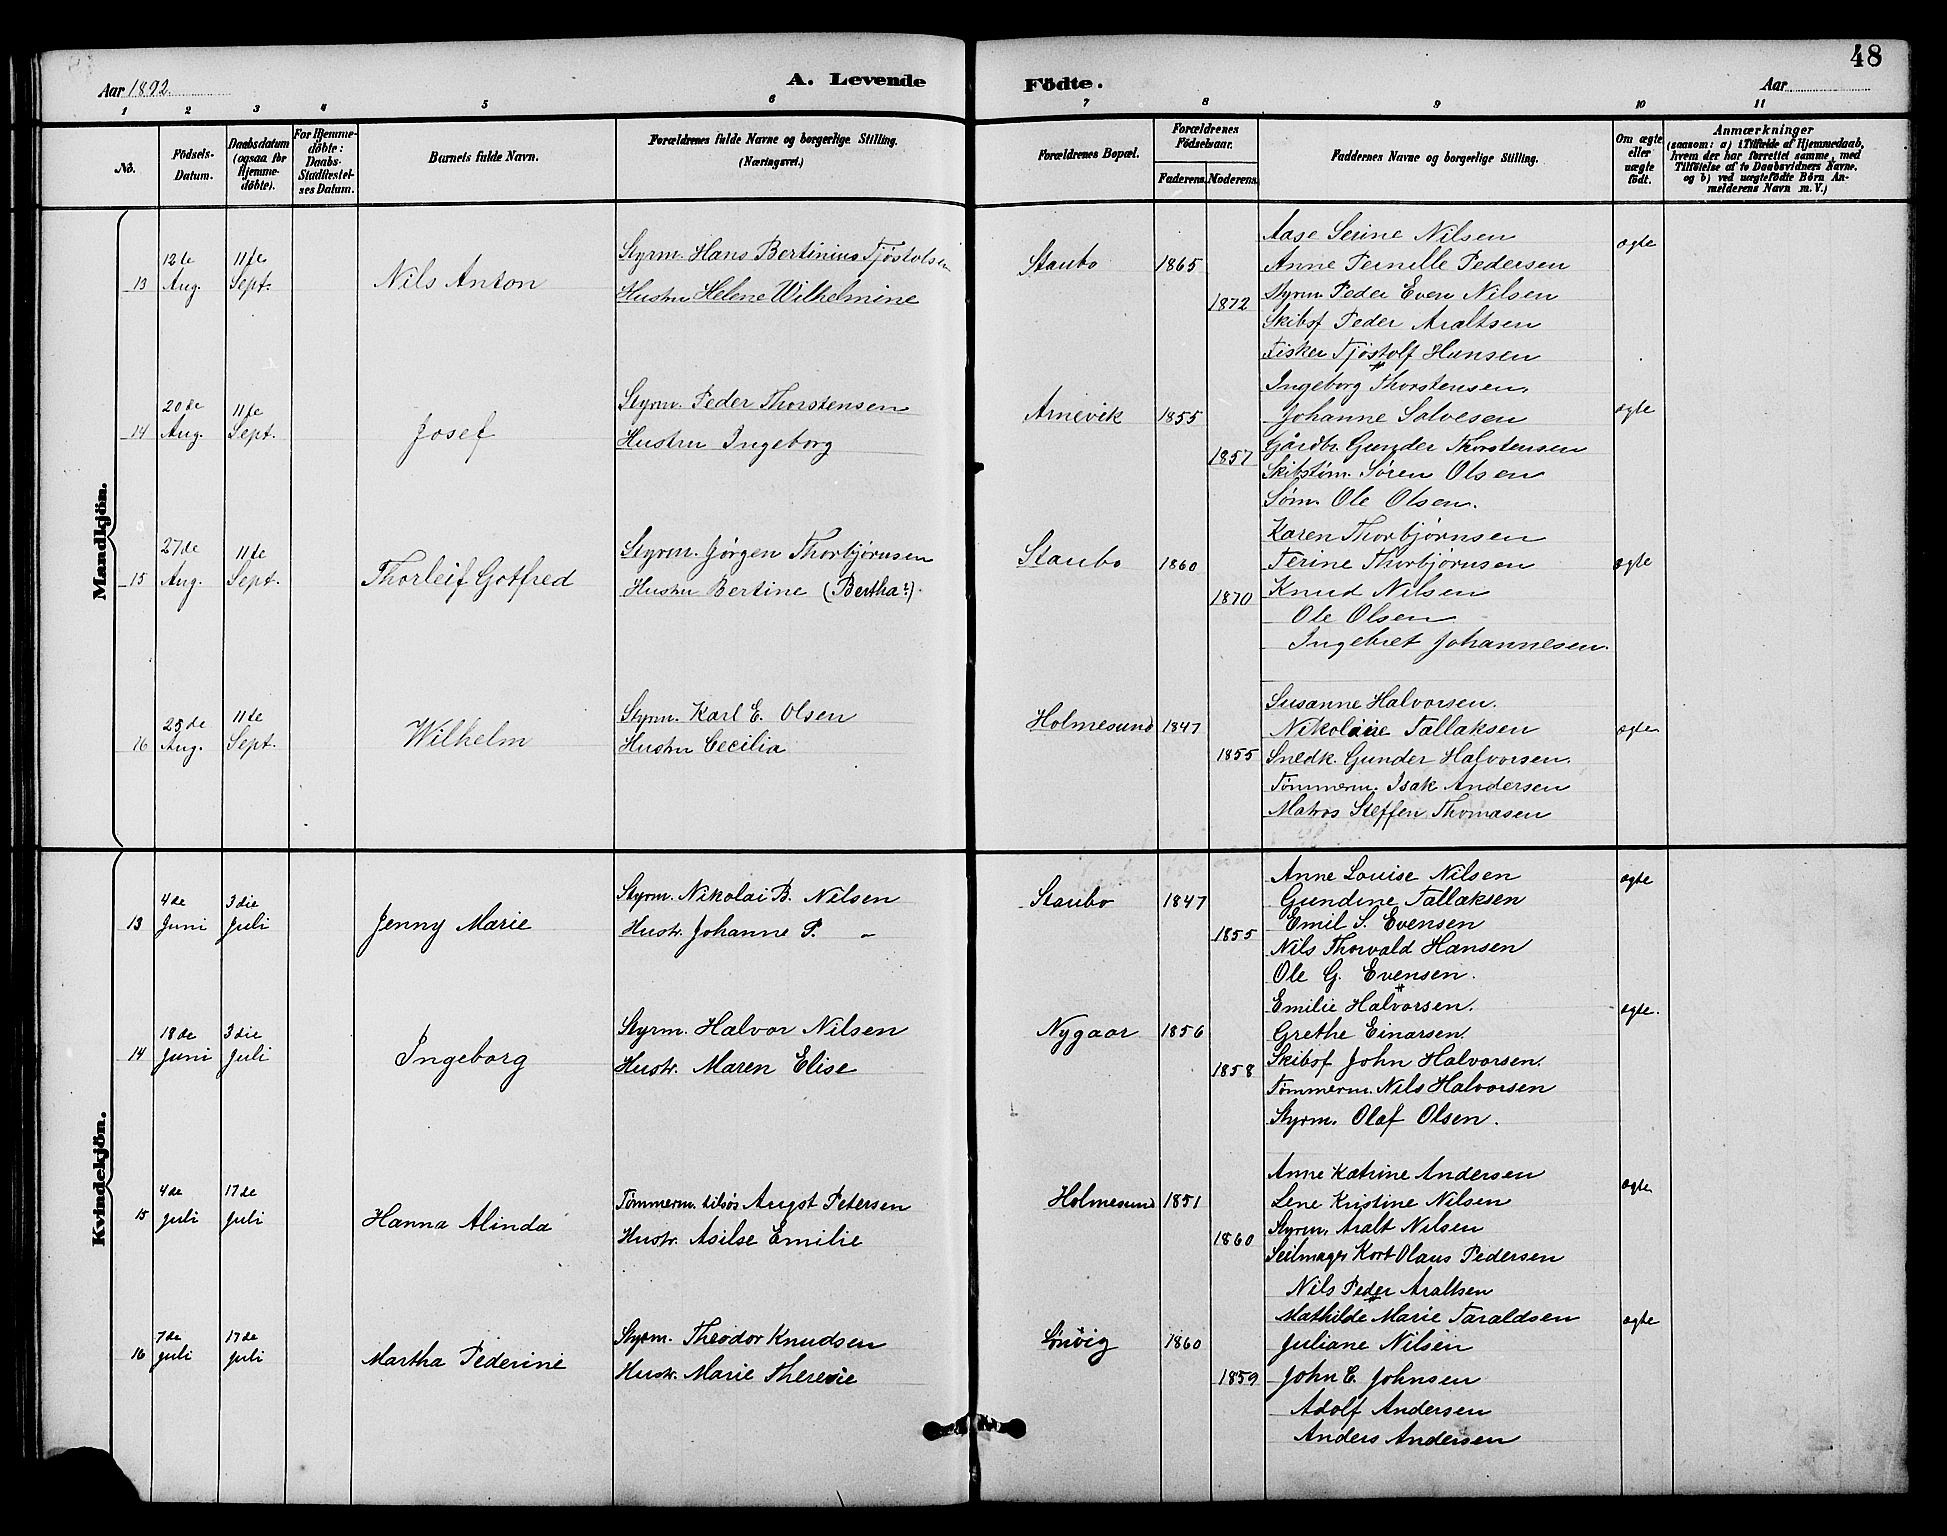 48
Aar 1892
A. Levende Födte.
Aar
1 2 3 4 5 6 7 8 9 10 11
No.
Födsels-Datum.
Daabsdatum (ogsaa for Hjemme-döbte).
For Hjemme-döbte: Daabs-Stadfæstel-ses Datum.
Barnets fulde Navn.
Forældrenes fulde Navne og borgerlige Stilling. (Næringsvei.)
Forældrenes Bopæl.
Forældrenes Födselsaar.
Faderens. Moderens.
Faddernes Navne og borgerlige Stilling.
Om ægte eller uægte födt.
Anmærkninger
(saasom: a) i Tilfælde af Hjemmedaab, hvem der har forrettet samme, med Tilföielse af to Daabsvidners Navne, og b) ved uægtefödte Börn An-melderens Navn m. V.)
Mandkjön.
13 12te Aug. 11te Sept. Nils Anton
Styrm. Hans Bertinius Tjøstolsen
Hustru Helene Wilhelmine
Staubo 1865 1872
Aase Serine Nilsen
Anne Pernille Pedersen
Styrm. Peder Even Nilsen
Skibsf Peder Araltsen
Fisker Tjøstolf Hansen
ægte
14 20de Aug. 11te Sept. Josef
Styrm. Peder Thorstensen
Hustru Ingeborg
Arnevik 1855 1857
Ingeborg Thorstensen
Johanne Salvesen
Gårdbr. Gunder Thorstensen
Skibstøm. Søren Olsen
Søm. Ole Olsen.
ægte
15 27de Aug. 11te Sept. Thorleif Gotfred
Styrm. Jørgen Thorbjørnsen
Hustru Bertine (Bertha?).
Staubo 1860 1870
Karen Thorbjørnsen
Terine Thorbjørnsen
Knud Nilsen
Ole Olsen
Ingebret Johannesen.
ægte
16 25de Aug. 11te Sept. Wilhelm
Styrm. Karl E. Olsen
Hustru Cecilia
Holmesund 1847 1855
Susanne Halvorsen.
Nikoline Tallaksen
Snedk. Gunder Halvorsen.
Tømmerm. Isak Andersen
Matros Steffen Thomasen
ægte
Kvindekjön.
13 4de Juni 3die Juli Jenny Marie
Styrm. Nikolai B. Nilsen
Hustr. Johanne P. "
Staubo 1847 1855
Anne Louise Nilsen
Gundine Tallaksen
Emil S. Evensen
Nils Thorvald Hansen
Ole G. Evensen.
ægte
14 18de Juni 3die Juli Ingeborg
Styrm. Halvor Nilsen
Hustr. Maren Elise
Nygaar 1856 1858
Emilie Halvorsen.
Grethe Einarsen.
Skibsf John Halvorsen.
Tømmerm. Nils Halvorsen
Styrm. Olaf Olsen.
ægte.
15 4de Juli 17de Juli Hanna Alinda
Tømmerm. tilsøs Augst Petersen
Hustr. Asilse Emilie
Holmesund 1851 1860
Anne Katrine Andersen
Lene Kristine Nilsen
Styrm. Aralt Nilsen
Seilmager Kort Olaus Pedersen
Nils Peder Araltsen
ægte
16 7de Juli 17de Juli Martha Pederine
Styrm. Theodor Knudsen
Hustr. Marie Theresie
1860 1859
Mathilde Marie Taraldsen
Juliane Nilsen
John E. Johnsen
Adolf Andersen
Anders Andersen
ægte